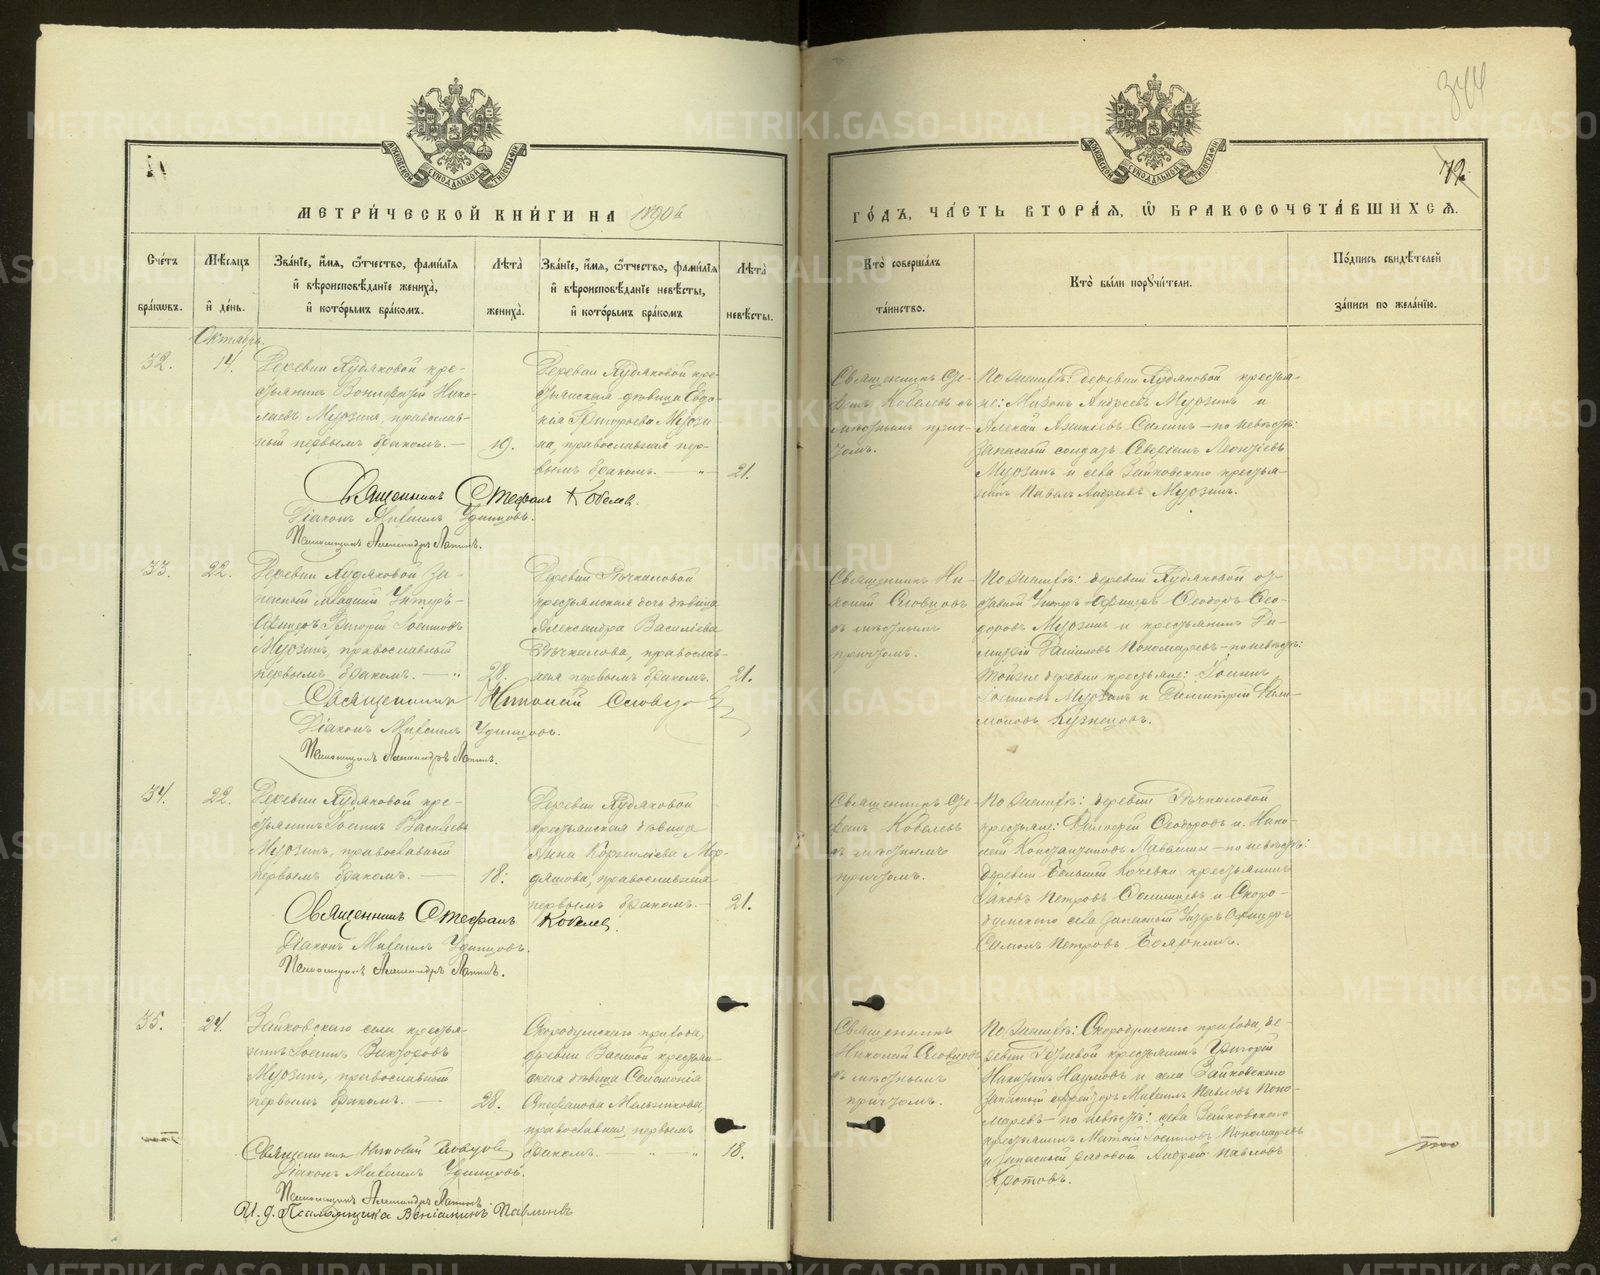 344
72.
МЕТРИ́ЧЕСКОЙ КНИ́ГИ НА 1890 г.
ГО́ДЪ, ЧА́СТЬ ВТОРА́Я, Ѡ҆ БРАКОСОЧЕТА́ВШИХСЯ.
Сче́тъ бра́кωвъ.
Мѣ́сяцъ и҆ де́нь.
Зва́нїе, и҆́мя, ѻ҆́тчество, фами́лїя
и҆ вѣроисповѣ́данїе жениха̀,
и҆ кото́рымъ бра́комъ.
Лѣ́та жениха̀.
Зва́нїе, и҆́мя, ѻ҆́тчество, фами́лїя
и҆ вѣроисповѣ́данїе невѣ́сты,
и҆ кото́рымъ бра́комъ
Лѣ́та невѣ́сты.
Кто̀ соверша́лъ та́инство.
Кто̀ бы́ли порꙋчи́тели.
По́дпись свидѣ́телей
за́писи по жела́нїю.
Октябрь.
32.
14.
Деревни Худяковой кре-
стьянинъ Вонифатій Нико-
лаевъ Мурзинъ, православ-
ный первымъ бракомъ. —
19.
Деревни Худяковой кре-
стьянская дѣвица Евдо-
кія Григорьева Мурзи-
на, православная пер-
вымъ бракомъ. — „
21.
Священникъ Сте-
фанъ Кобелевъ съ
мѣстнымъ прич-
томъ.
По женихѣ: деревни Худяковой крестья-
не: Мизонъ Андреевъ Мурзинъ и
Алексѣй Силинъ — по невѣстѣ:
запасный солдатъ Северіанъ Леонтіевъ
Мурзинъ и села Зайковскаго крестья-
нинъ Павелъ Андреевъ Мурзинъ.
Священникъ Стефанъ Кобелевъ.
Діаконъ Михаилъ Удинцовъ.
Псаломщикъ Александръ Лапинъ.
33.
22.
Деревни Худяковой за-
пасный младшій Унтеръ-
Офицеръ Григорій Іосифовъ
Мурзинъ, православный
первымъ бракомъ. — „
28.
Деревни Рѣчкаловой
крестьянская дочь дѣвица
Александра Василіева
Рѣчкалова, православ-
ная первымъ бракомъ.
21.
Священникъ Ни-
колай Словцовъ
съ мѣстнымъ
причтомъ.
По женихѣ: деревни Худяковой от-
ставной Унтеръ-Офицеръ Ѳеодоръ Ѳео-
доровъ Мурзинъ и крестьянинъ Ди-
митрій Даниловъ Пономаревъ — по невѣстѣ:
тойже деревни крестьяне: Іосифъ
Іосифовъ Мурзинъ и Димитрій Фили-
моновъ Кузнецовъ.
Священникъ Николай Словцовъ
Діаконъ Михаилъ Удинцовъ.
Псаломщикъ Александръ Лапинъ.
34.
22.
Деревни Худяковой кре-
стьянинъ Іосифъ Василіевъ
Мурзинъ, православный
первымъ бракомъ. —
18.
Деревни Худяковой
крестьянская дѣвица
Анна Корниліева Мур-
дашова, православная
первымъ бракомъ. —
21.
Священникъ Сте-
фанъ Кобелевъ
съ мѣстнымъ
причтомъ.
По женихѣ: деревни Рѣчкаловой
крестьяне: Ѳеодоровъ и Нико-
лай Константиновъ — по невѣстѣ:
деревни Большей Кочевки крестьянинъ
Іаковъ Петровъ и Скоро-
думскаго села запасный Унтеръ Офицеръ
Симонъ Петровъ Бояркинъ.
Священникъ Стефанъ Кобелевъ.
Діаконъ Михаилъ Удинцовъ.
Псаломщикъ Александръ Лапинъ.
35.
24.
Зайковскаго села крестья-
нинъ Іосифъ Викторовъ
Мурзинъ, православный
первымъ бракомъ. —
28.
Скородумскаго прихода,
деревни Васиной крестьян-
ская дѣвица Соломонія
Стефанова Мельникова,
православная первымъ
бракомъ. — „ — „
18.
Священникъ
Николай Словцовъ
съ мѣстнымъ
причтомъ.
По женихѣ: Скородумскаго прихода, де-
ревни крестьянинъ Григорій
Никитинъ Наумовъ и села Зайковскаго
запасный ефрейторъ Михаилъ Павловъ Поно-
маревъ — по невѣстѣ: села Зайковскаго
крестьянинъ Матѳій Іосифовъ Пономаревъ
и запасный рядовой Андрей Павловъ
Кротовъ.
Священникъ Николай Словцовъ
Діаконъ Михаилъ Удинцовъ.
Псаломщикъ Александръ Лапинъ.
И. д. Псаломщика Веніаминъ Павлиновъ